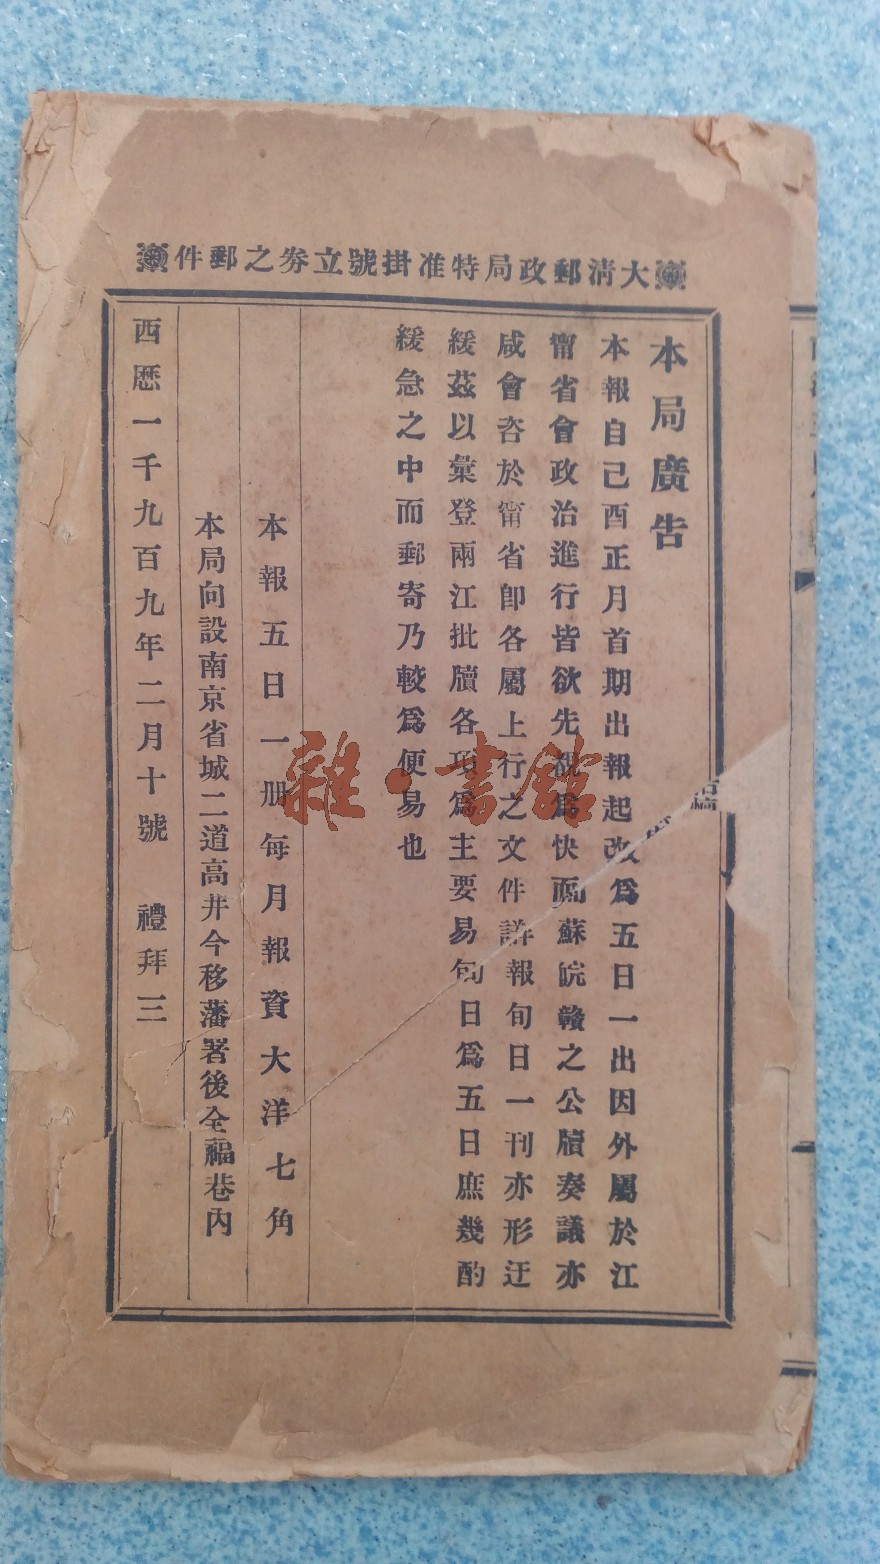 大清郵政局特准掛號立券之郵件
本局廣告
本報自己酉正月首期出報起改爲五日一出因外屬於江
甯省會政治進行皆欲先覩爲快而蘇皖贛之公牘奏議亦
咸會咨於甯省卽各屬上行之文件詳報旬日一刊亦形迂
緩茲以彙登兩江批牘各項爲主要易旬日爲五日庶幾酌
緩急之中而郵寄乃較爲便易也
本報五日一册每月報資大洋七角
本局向設南京省城二道高井今移藩署後全福巷內
西歷一千九百九年二月十號 禮拜三
雜·書館